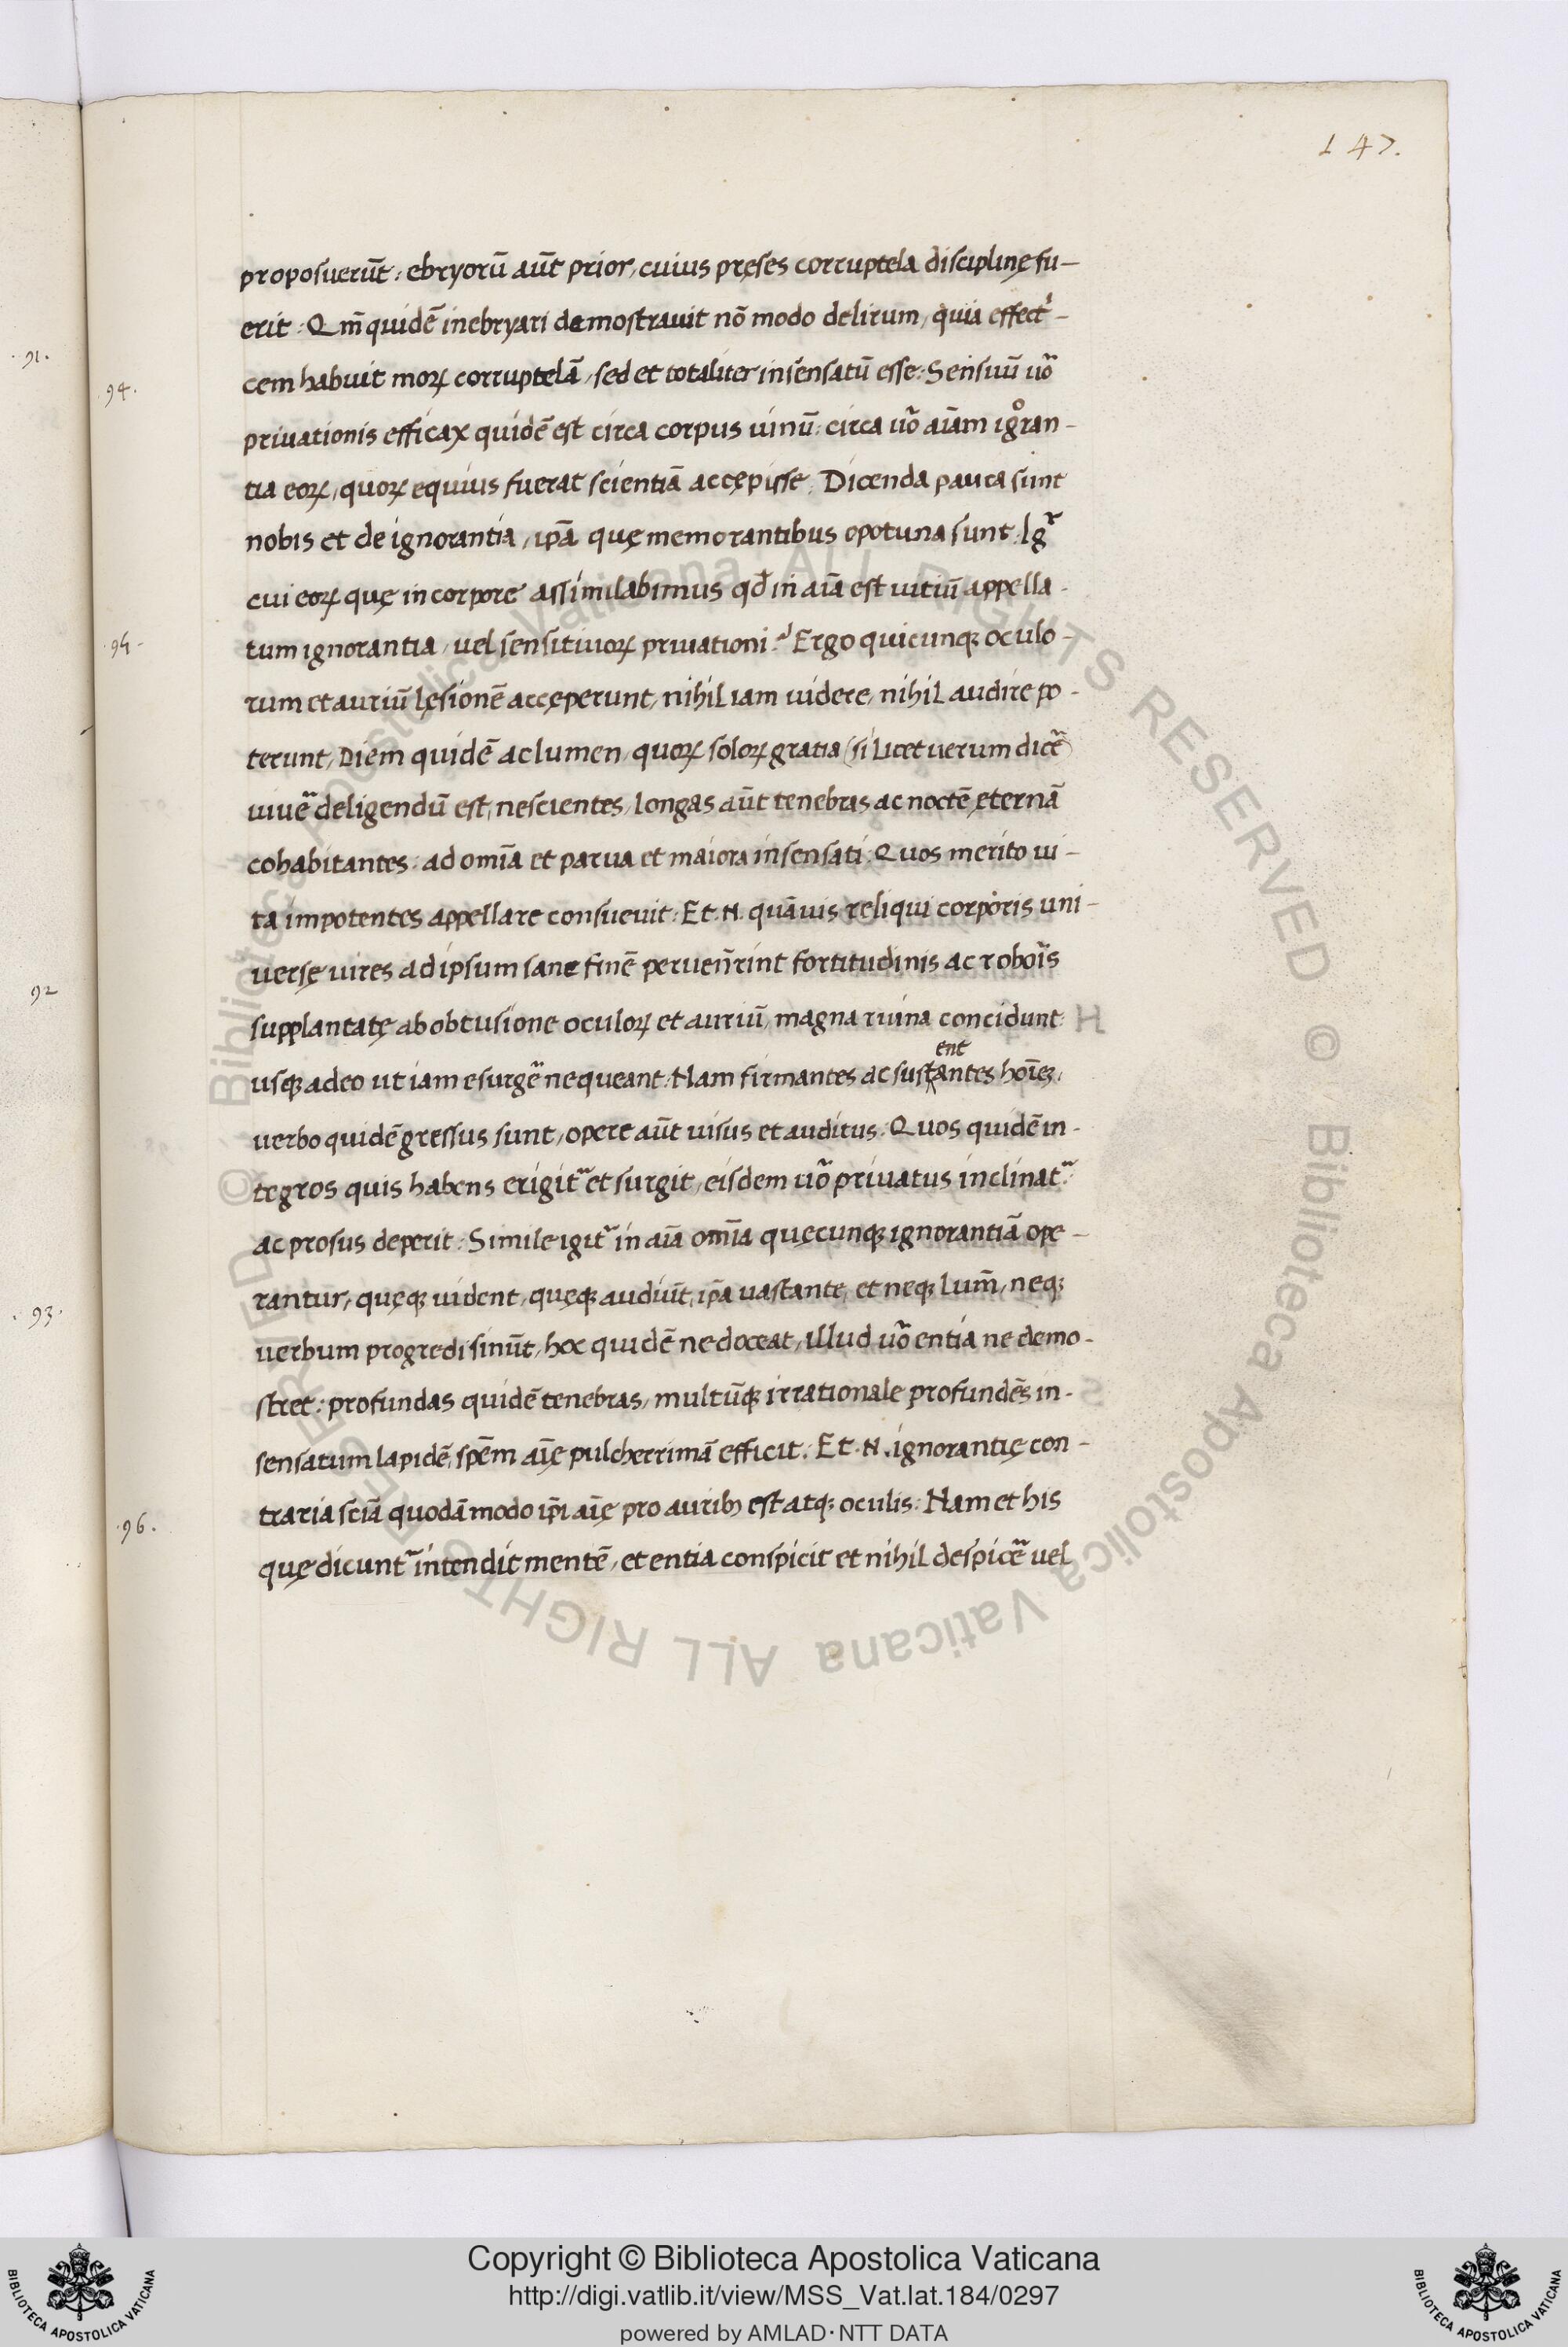 147.
proposuerūt: ebryorū aūt prior, cuius pręses corruptela disciplinę fu-
erit: Qm̄ quidē inebryari demostrauit nō modo delirum, quia effectͥ-
cem habuit moꝝ corruptelā, sed et totaliter insensatū esse: Sensuū uo᷑
94.
priuationis efficax quidē est circa corpus uinū: circa uo᷑ aīam igͦran-
tia eoꝝ, quoꝝ equius fuerat scientiā accępisse: Dicenda pauca sunt
nobis et de ignorantia, ip̄a quę memorantibus opotuna sunt: Ig᷑
cui eoꝝ quę in corpore assimilabimus qđ in aīa est uitiū appella-
95-
tum ignorantia, uel sensitiuoꝝ priuationi? Ergo quicunqꝫ oculo-
rum et auriū lęsionē accęperunt, nihil iam uidere, nihil audire po-
terunt, Diem quidē ac lumen, quoꝝ soloꝝ gratia (si licet uerum dice᷑)
uiue᷑ deligendū est, nescientes, longas aūt tenebras ac noctē ęternā
cohabitantes: ad omīa et parua et maiora insensati: Quos merito ui-
ta impotentes appellare consueuit: Et .N. quāuis reliqui corporis uni-
uersę uires ad ipsum sane finē peruen̄rint fortitudinis ac roboīs
supplantatę ab obtusione oculoꝝ et auriū, magna ruina concidunt
usqꝫ adeo ut iam esurge᷑ nequeant: Nam firmantes ac sust^antes hoīes,
ent
uerbo quidē gressus sunt, opere aūt uisus et auditus: Quos quidē in-
tegros quis habens erigit᷑ et surgit, eisdem uo᷑ priuatus inclinat᷑
ac prosus deperit: Simile igit᷑ in aīa omīa quęcunqꝫ ignorantiā ope-
rantur, quęqꝫ uident, quęqꝫ audiūt, ip̄a uastante, et neqꝫ lum̄, neqꝫ
uerbum progredi sinūt, hoc quidē ne doceat, illud uo᷑ entia ne demo-
stret: profundas quidē tenebras, multūqꝫ irrationale profundēs in-
sensatum lapidē, spēm aīę pulcherrimā efficit: Et .N. ignorantię con-
traria sciā quodāmodo ip̄i aīę pro auribꝫ est atqꝫ oculis: Nam et his
96.
quę dicunt᷑ intendit mentē, et entia conspicit et nihil despice᷑ uel
91.
92
93.
© Biblioteca Apostolica Vaticana ALL RIGHTS RESERVED © Biblioteca Apostolica Vaticana ALL RIGHTS RESERVED
BIBLIOTECA APOSTOLICA VATICANA
Copyright © Biblioteca Apostolica Vaticana
http://digi.vatlib.it/view/MSS_Vat.lat.184/0297
powered by AMLAD·NTT DATA
BIBLIOTECA APOSTOLICA VATICANA